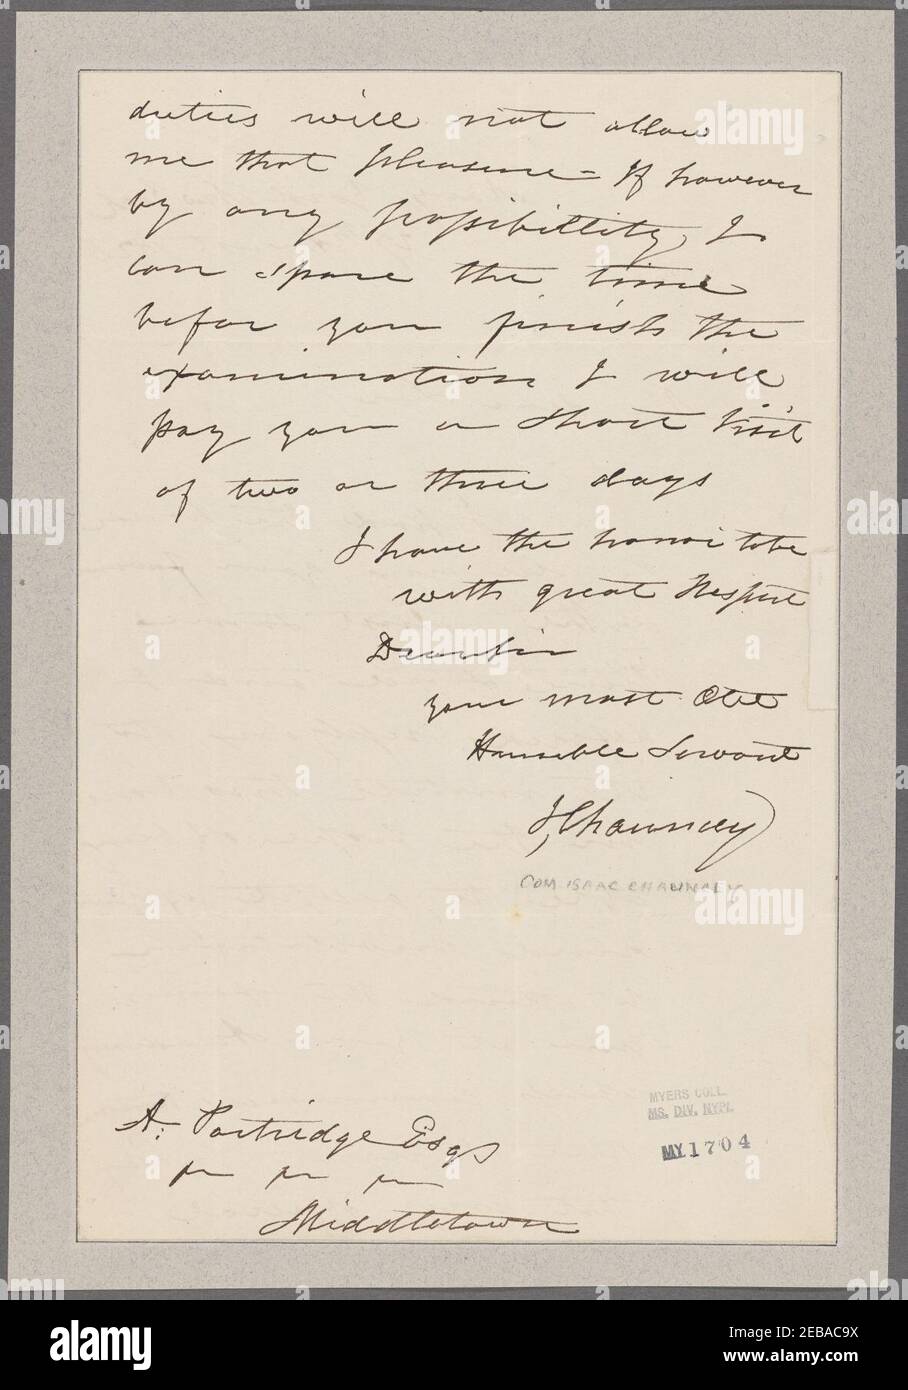 duties will not allow
me that pleasure – If however
by any possibillity I
can spare the time
befor you finish the
examination I will
pay you a short Visit
of two or three days
I have the honor to be
with great Respect
Dear Sir
your most Obt
Humble Servant
I, Chauncey
COM. ISAAC CHAUNCEY
A. Partridge Esqr
Middletown
MYERS COLL.
MS. DIV. NYPL.
MY 1704
alamy
Image ID: 2EBAC9X
www.alamy.com